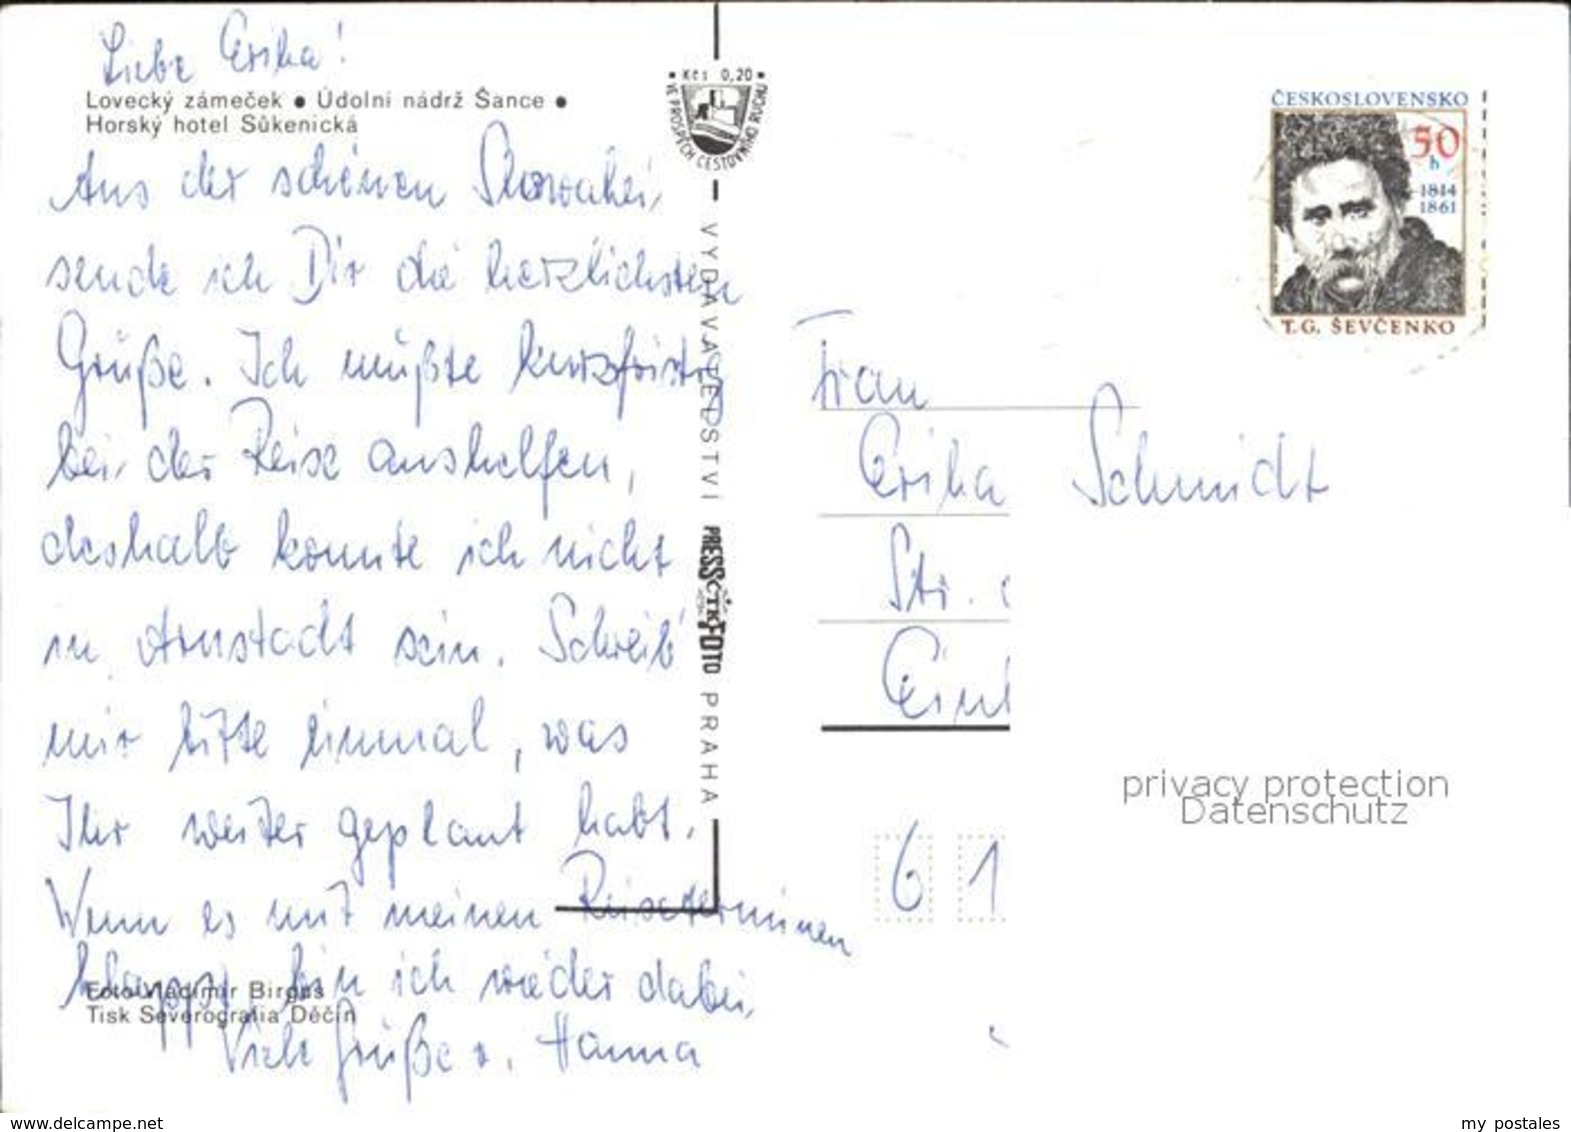 Liebe Erika!
Lovecký zámeček ● Údolní nádrž Šance ●
Horský hotel Súkenická
Aus der schönen Slowakei,
sende ich Dir die herzlichsten
Grüße. Ich müßte kurzfristig
bei der Reise aushelfen,
deshalb konnte ich nicht
in Arnstadt sein. Schreib'
mir bitte einmal, was
Ihr weiter geplant habt.
Wenn es mit meinen Reiseterminen
klappt, bin ich wieder dabei,
Foto Vladimír Birgus
Tisk Severografia Děčín
Viele Grüße v. Hanna
Kčs 0,20
VE PROSPĚCH CESTOVNÍHO RUCHU
VYDAVATELSTVÍ PRESSFOTO PRAHA
ČTK
ČESKOSLOVENSKO
50
h
1814
1861
T.G. ŠEVČENKO
Frau
Erika Schmidt
Str.
61
privacy protection
Datenschutz
www.delcampe.net
my postales